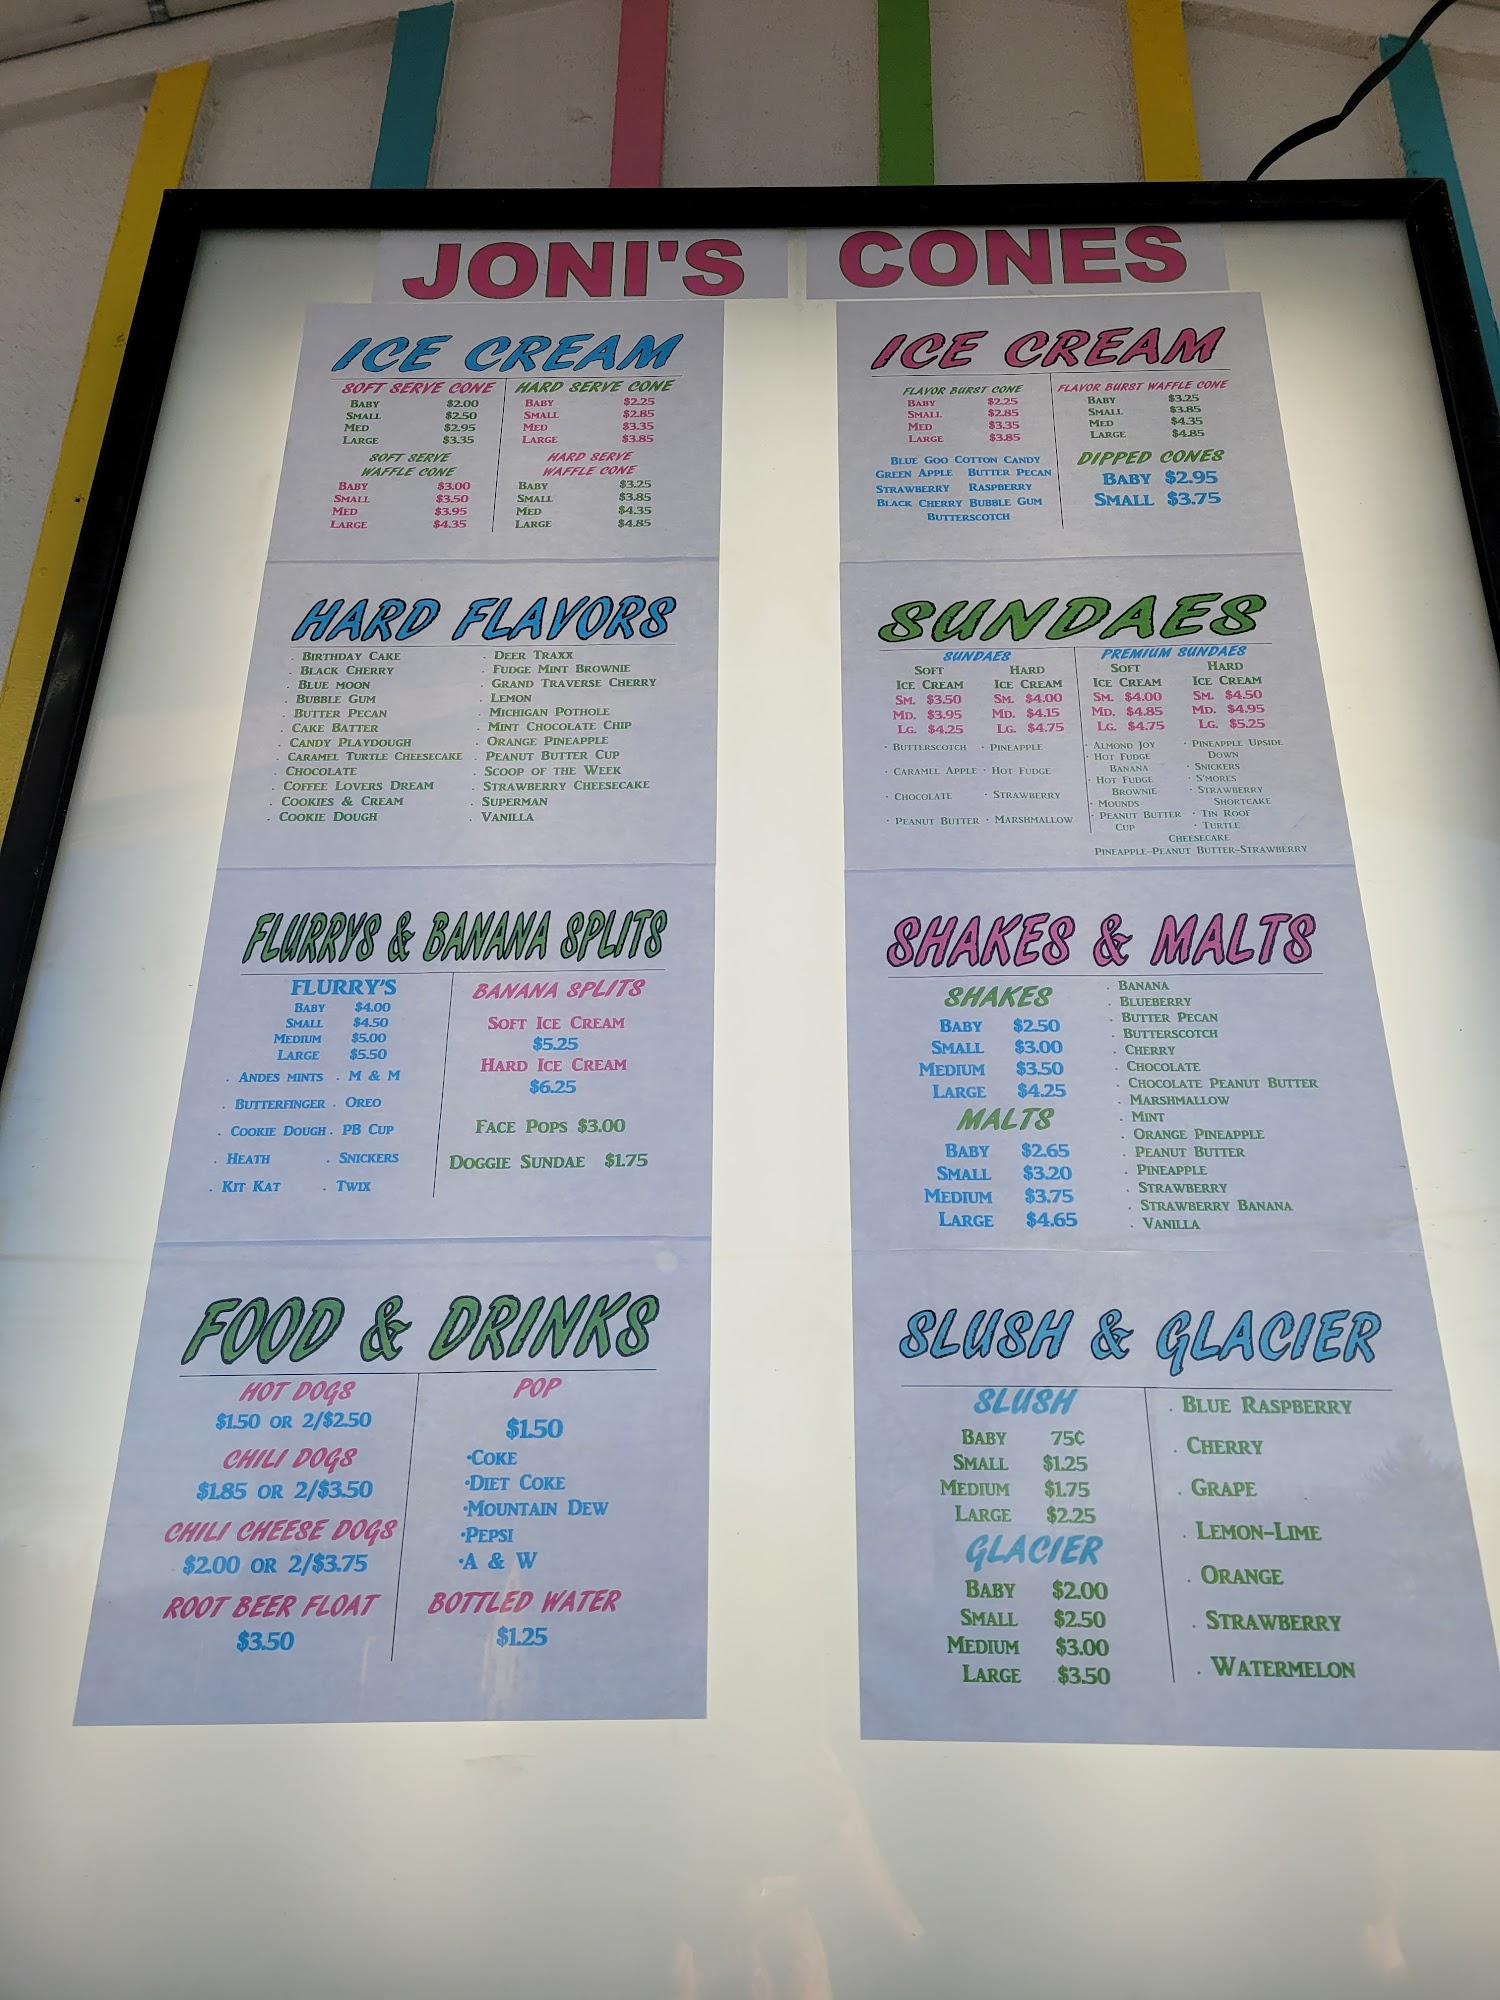 JONI'S CONES
ICE CREAM
SOFT SERVE CONE
BABY $2.00
SMALL $2.50
MED $2.95
LARGE $3.35
HARD SERVE CONE
BABY $2.25
SMALL $2.85
MED $3.35
LARGE $3.85
SOFT SERVE
WAFFLE CONE
BABY $3.00
SMALL $3.50
MED $3.95
LARGE $4.35
HARD SERVE
WAFFLE CONE
BABY $3.25
SMALL $3.85
MED $4.35
LARGE $4.85
HARD FLAVORS
. BIRTHDAY CAKE
. BLACK CHERRY
. BLUE MOON
. BUBBLE GUM
. BUTTER PECAN
. CAKE BATTER
. CANDY PLAYDOUGH
. CARAMEL TURTLE CHEESECAKE
. CHOCOLATE
. COFFEE LOVERS DREAM
. COOKIES & CREAM
. COOKIE DOUGH
. DEER TRAXX
. FUDGE MINT BROWNIE
. GRAND TRAVERSE CHERRY
. LEMON
. MICHIGAN POTHOLE
. MINT CHOCOLATE CHIP
. ORANGE PINEAPPLE
. PEANUT BUTTER CUP
. SCOOP OF THE WEEK
. STRAWBERRY CHEESECAKE
. SUPERMAN
. VANILLA
FLURRYS & BANANA SPLITS
FLURRY'S
BABY $4.00
SMALL $4.50
MEDIUM $5.00
LARGE $5.50
. ANDES MINTS . M & M
. BUTTERFINGER . OREO
. COOKIE DOUGH . PB CUP
. HEATH . SNICKERS
. KIT KAT . TWIX
BANANA SPLITS
SOFT ICE CREAM
$5.25
HARD ICE CREAM
$6.25
FACE POPS $3.00
DOGGIE SUNDAE $1.75
FOOD & DRINKS
HOT DOGS
$1.50 OR 2/$2.50
CHILI DOGS
$1.85 OR 2/$3.50
CHILI CHEESE DOGS
$2.00 OR 2/$3.75
ROOT BEER FLOAT
$3.50
POP
$1.50
·COKE
·DIET COKE
·MOUNTAIN DEW
·PEPSI
·A & W
BOTTLED WATER
$1.25
ICE CREAM
FLAVOR BURST CONE
BABY $2.25
SMALL $2.85
MED $3.35
LARGE $3.85
BLUE GOO COTTON CANDY
GREEN APPLE BUTTER PECAN
STRAWBERRY RASPBERRY
BLACK CHERRY BUBBLE GUM
BUTTERSCOTCH
FLAVOR BURST WAFFLE CONE
BABY $3.25
SMALL $3.85
MED $4.35
LARGE $4.85
DIPPED CONES
BABY $2.95
SMALL $3.75
SUNDAES
SUNDAES
SOFT HARD
ICE CREAM ICE CREAM
SM. $3.50 SM. $4.00
MD. $3.95 MD. $4.15
LG. $4.25 LG. $4.75
· BUTTERSCOTCH · PINEAPPLE
· CARAMEL APPLE · HOT FUDGE
· CHOCOLATE · STRAWBERRY
· PEANUT BUTTER · MARSHMALLOW
PREMIUM SUNDAES
SOFT HARD
ICE CREAM ICE CREAM
SM. $4.00 SM. $4.50
MD. $4.85 MD. $4.95
LG. $4.75 LG. $5.25
· ALMOND JOY
· HOT FUDGE
BANANA
· HOT FUDGE
BROWNIE
· MOUNDS
· PEANUT BUTTER
CUP
· PINEAPPLE UPSIDE
DOWN
· SNICKERS
· S'MORES
· STRAWBERRY
SHORTCAKE
· TIN ROOF
· TURTLE
CHEESECAKE
PINEAPPLE-PEANUT BUTTER-STRAWBERRY
SHAKES & MALTS
SHAKES
BABY $2.50
SMALL $3.00
MEDIUM $3.50
LARGE $4.25
MALTS
BABY $2.65
SMALL $3.20
MEDIUM $3.75
LARGE $4.65
. BANANA
. BLUEBERRY
. BUTTER PECAN
. BUTTERSCOTCH
. CHERRY
. CHOCOLATE
. CHOCOLATE PEANUT BUTTER
. MARSHMALLOW
. MINT
. ORANGE PINEAPPLE
. PEANUT BUTTER
. PINEAPPLE
. STRAWBERRY
. STRAWBERRY BANANA
. VANILLA
SLUSH & GLACIER
SLUSH
BABY 75¢
SMALL $1.25
MEDIUM $1.75
LARGE $2.25
GLACIER
BABY $2.00
SMALL $2.50
MEDIUM $3.00
LARGE $3.50
. BLUE RASPBERRY
. CHERRY
. GRAPE
. LEMON-LIME
. ORANGE
. STRAWBERRY
. WATERMELON